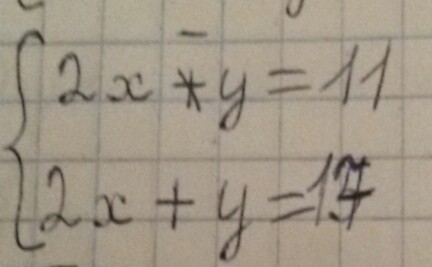 2x - y = 11
2x + y = 17